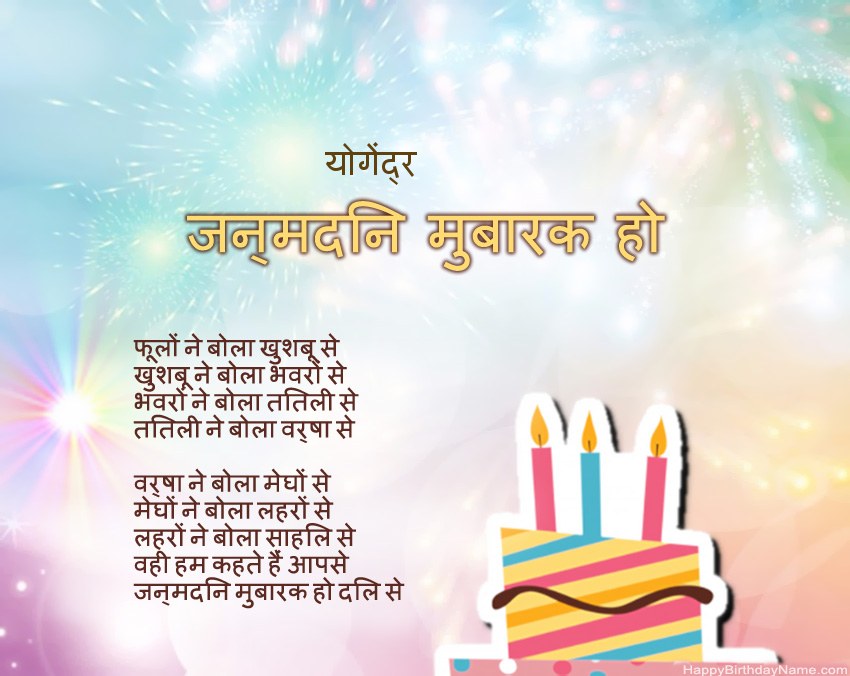 योगेंद्र
जन्मदिन मुबारक हो
फूलों ने बोला खुशबू से
खुशबू ने बोला भवरों से
भवरों ने बोला तितिली से
तितिली ने बोला वर्षा से
वर्षा ने बोला मेघों से
मेघों ने बोला लहरों से
लहरों ने बोला साहिल से
वही हम कहते हैं आपसे
जन्मदिन मुबारक हो दिल से
HappyBirthdayName.com